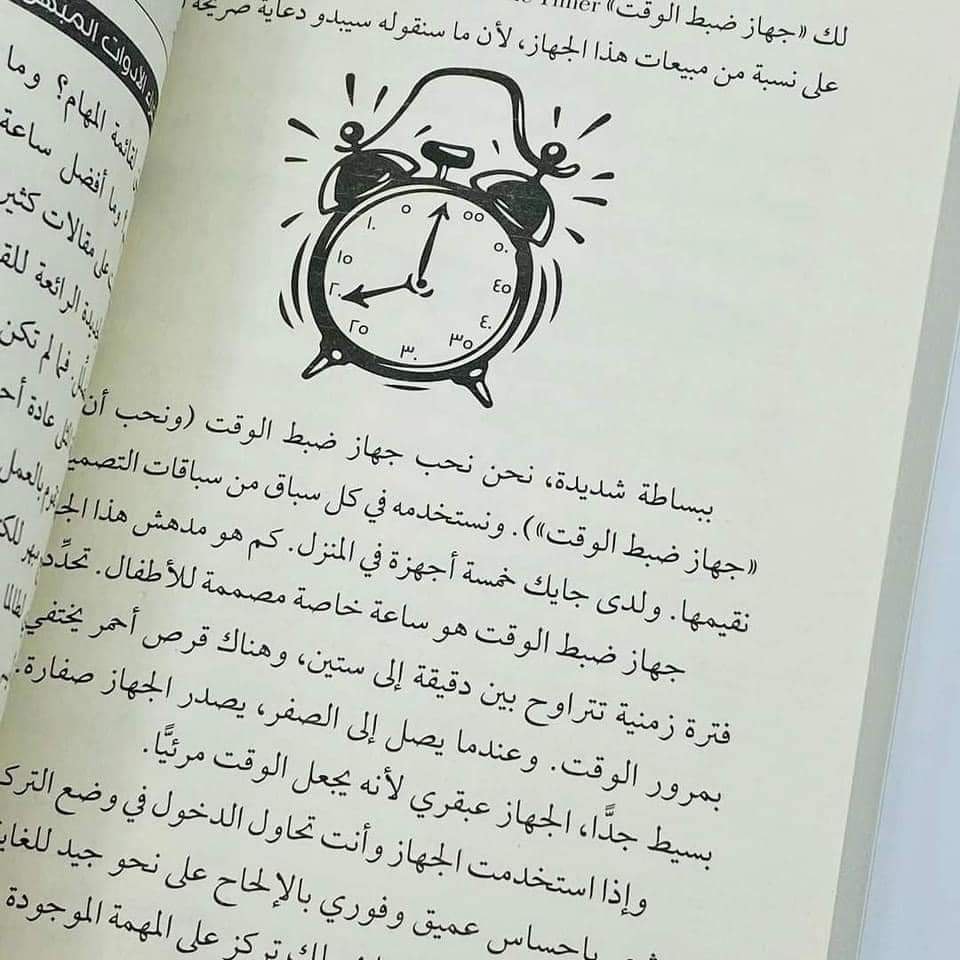 لك «جهاز ضبط الوقت» Timer
على نسبة من مبيعات هذا الجهاز، لأن ما سنقوله سيبدو دعاية صريحة
٥
١٠
١٥
٢٠
٢٥
٣٠
٣٥
٤٠
٤٥
٥٠
٥٥
ببساطة شديدة، نحن نحب جهاز ضبط الوقت (ونحب أن
«جهاز ضبط الوقت»). ونستخدمه في كل سباق من سباقات
نقيمها. ولدى جايك خمسة أجهزة في المنزل. كم هو مدهش هذا
جهاز ضبط الوقت هو ساعة خاصة مصممة للأطفال. تحدِّد
فترة زمنية تتراوح بين دقيقة إلى ستين، وهناك قرص أحمر يختفي
بمرور الوقت. وعندما يصل إلى الصفر، يصدر الجهاز صفارة.
بسيط جدًّا، الجهاز عبقري لأنه يجعل الوقت مرئيًّا.
وإذا استخدمت الجهاز وأنت تحاول الدخول في وضع
بإحساس عميق وفوري بالإلحاح على نحو جيد
تركز على المهمة الموجودة
الأدوات
المهام؟ وما
وما أفضل ساعة
على مقالات
الرائعة
فما لم تكن
عادة
بالعمل